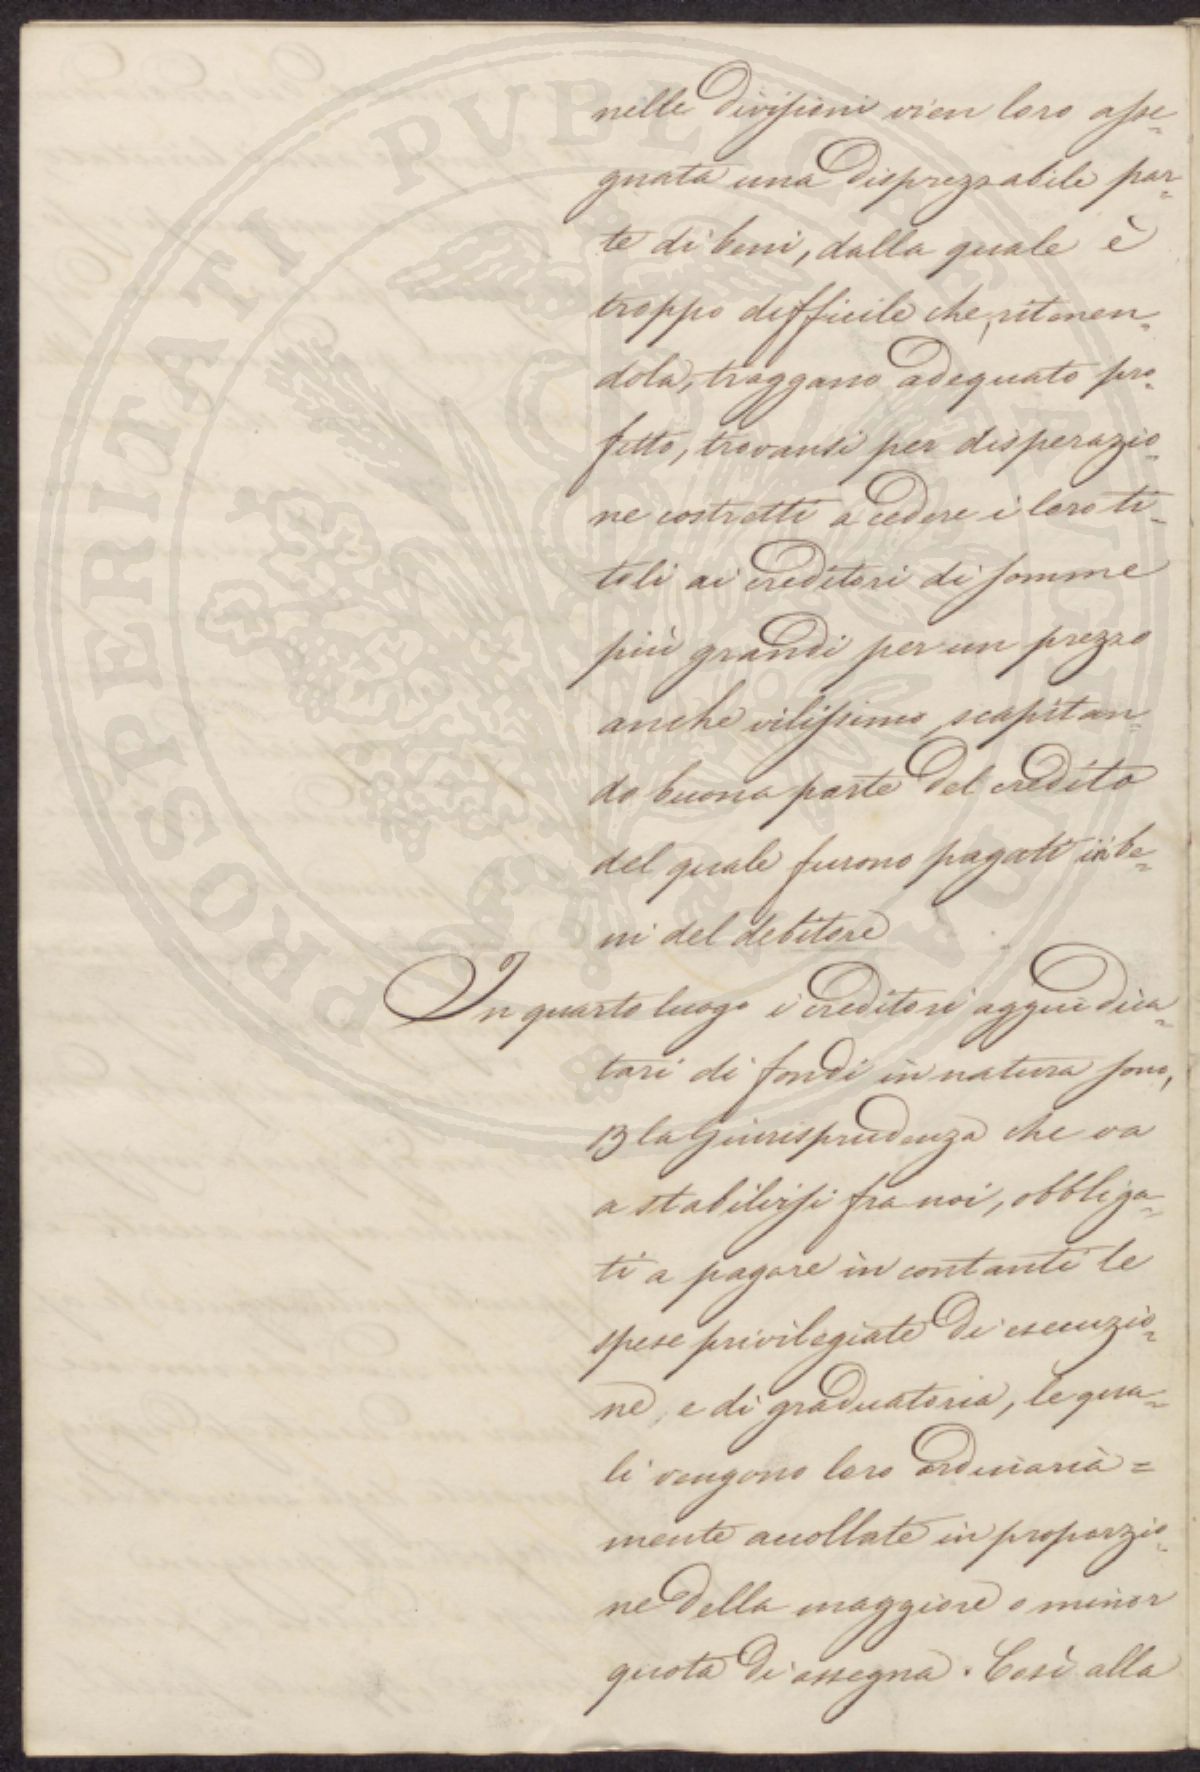 nelle divisioni vien loro asse=
gnata una disprezzabile par=
te di beni, dalla quale è
troppo difficile che, ritenen=
dola, traggano adequato pro=
fitto, trovansi per disperazio=
ne costretti a cedere i loro ti=
toli ai creditori di somme
più grandi per un prezzo
anche vilissimo, scapitan=
do buona parte del credito
del quale furono pagati in be=
ni del debitore
In quarto luogo i creditori aggiudica=
tari di fondi in natura sono,
la Giurisprudenza che va
a stabilirsi fra noi, obbliga=
ti a pagare in contanti le
spese privilegiate di esecuzio=
ne, e di graduatoria, le qua=
li vengono loro ordinaria=
mente accollate in proporzio=
ne della maggiore o minor
quota di assegna. Così alla
PROSPERITATI PUBLICAE